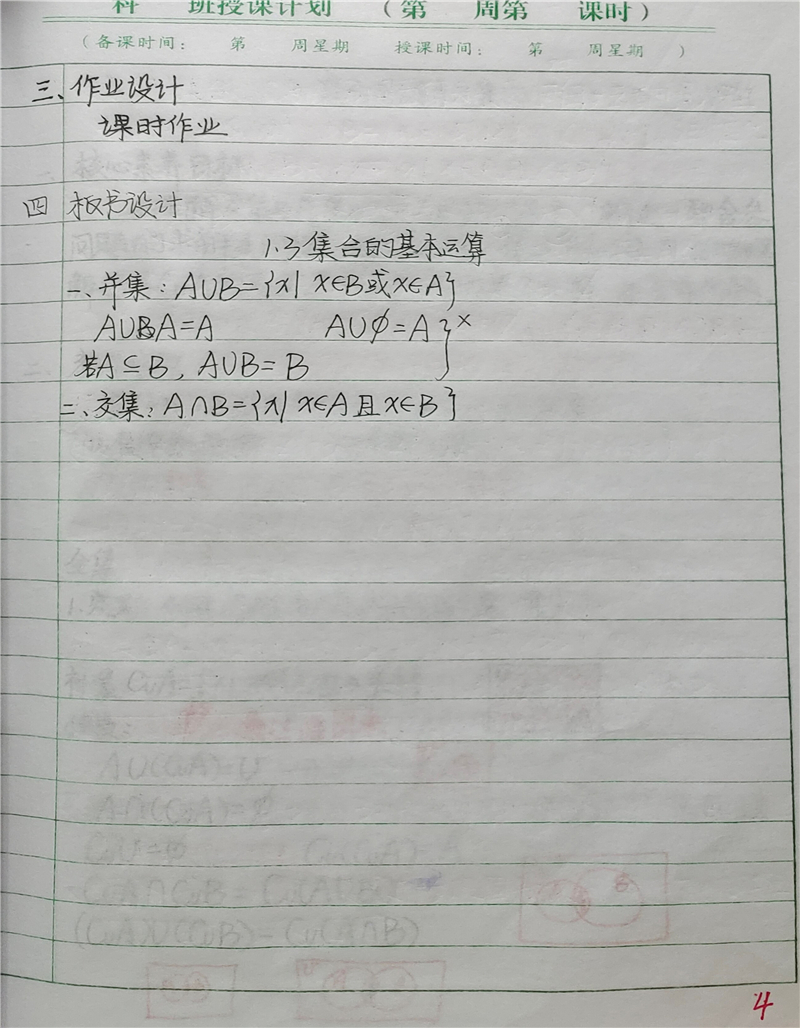 科 班授课计划 （第 周第 课时）
（备课时间： 第 周星期 授课时间： 第 周星期 ）
三、作业设计
课时作业
四 板书设计
1.3集合的基本运算
一、并集：A∪B={x| x∈B或x∈A}
A∪A=A A∪∅=A } x
若A⊆B, A∪B=B
二、交集：A∩B={x| x∈A且x∈B}
4